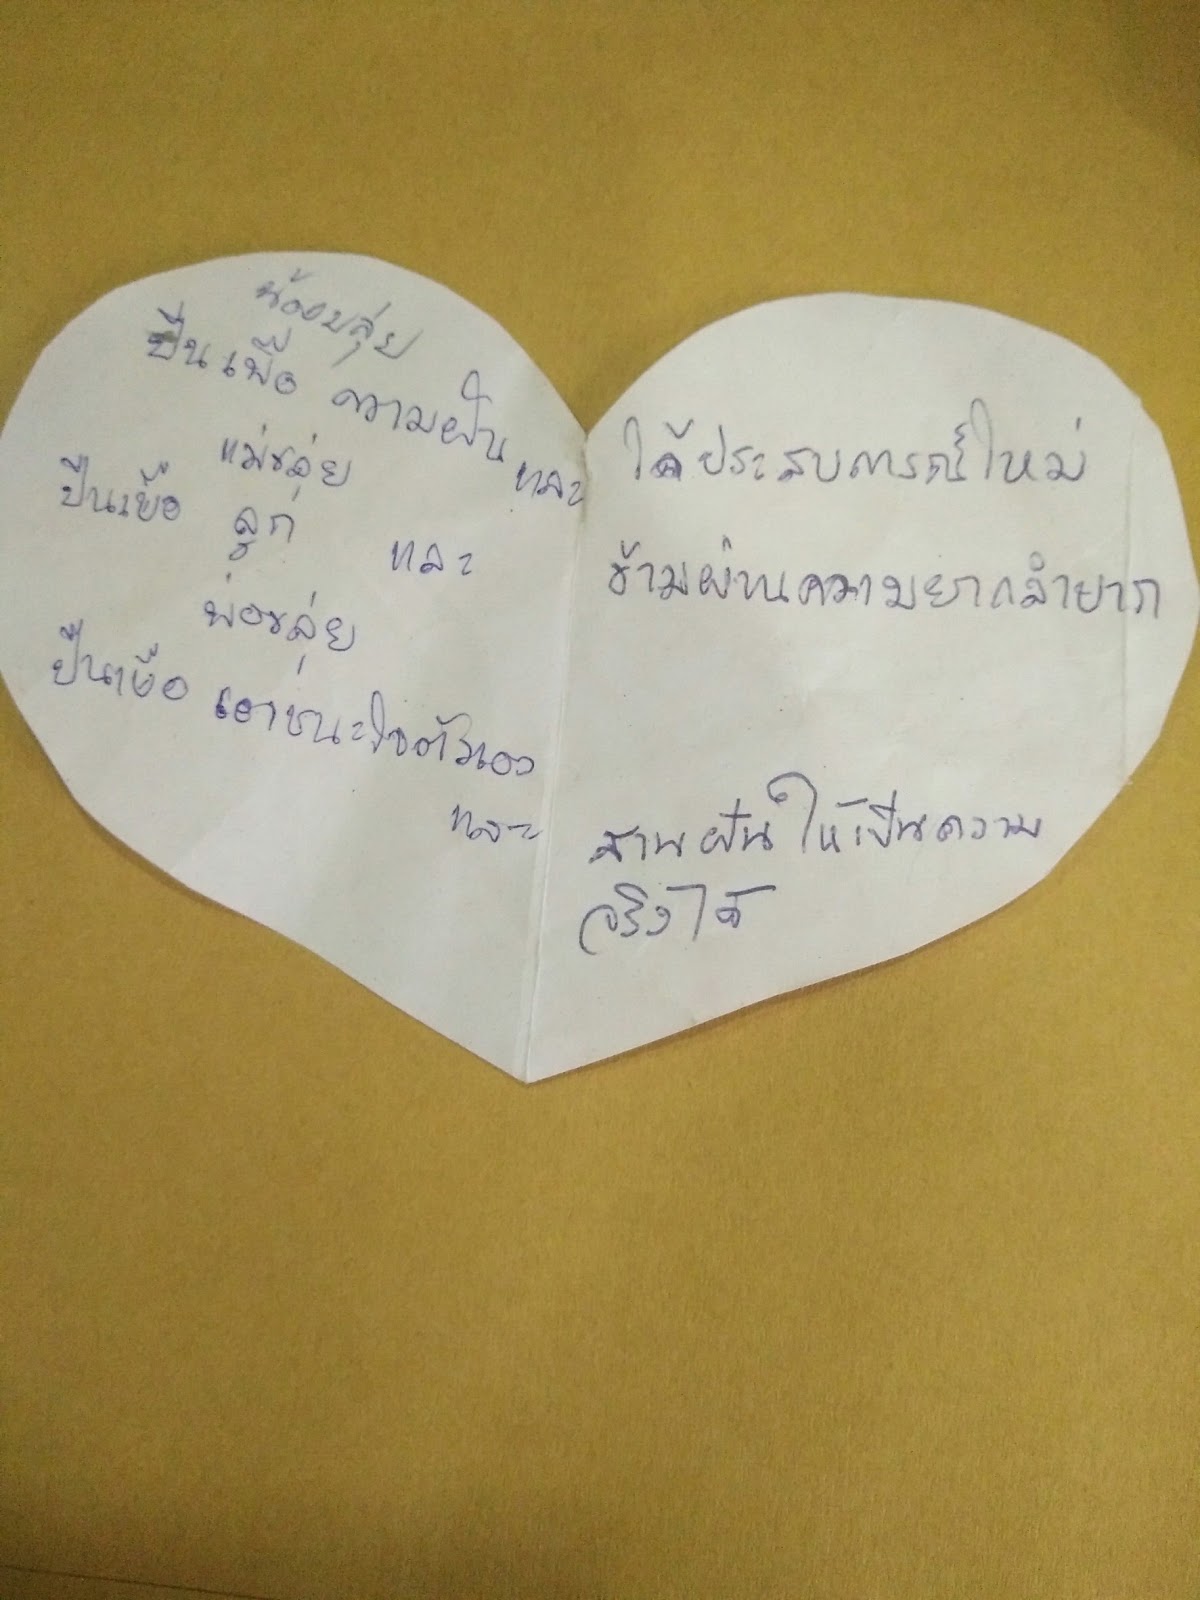 น้องขลุ่ย
ปีนเพื่อ ความฝัน และ ได้ประสบการณ์ใหม่
แม่ขลุ่ย
ปีนเพื่อ ลูก และ ข้ามผ่านความยากลำยาก
พ่อขลุ่ย
ปีนเพื่อ เอาชนะใจตัวเอง
และ สานฝันให้เป็นความ
จริงได้